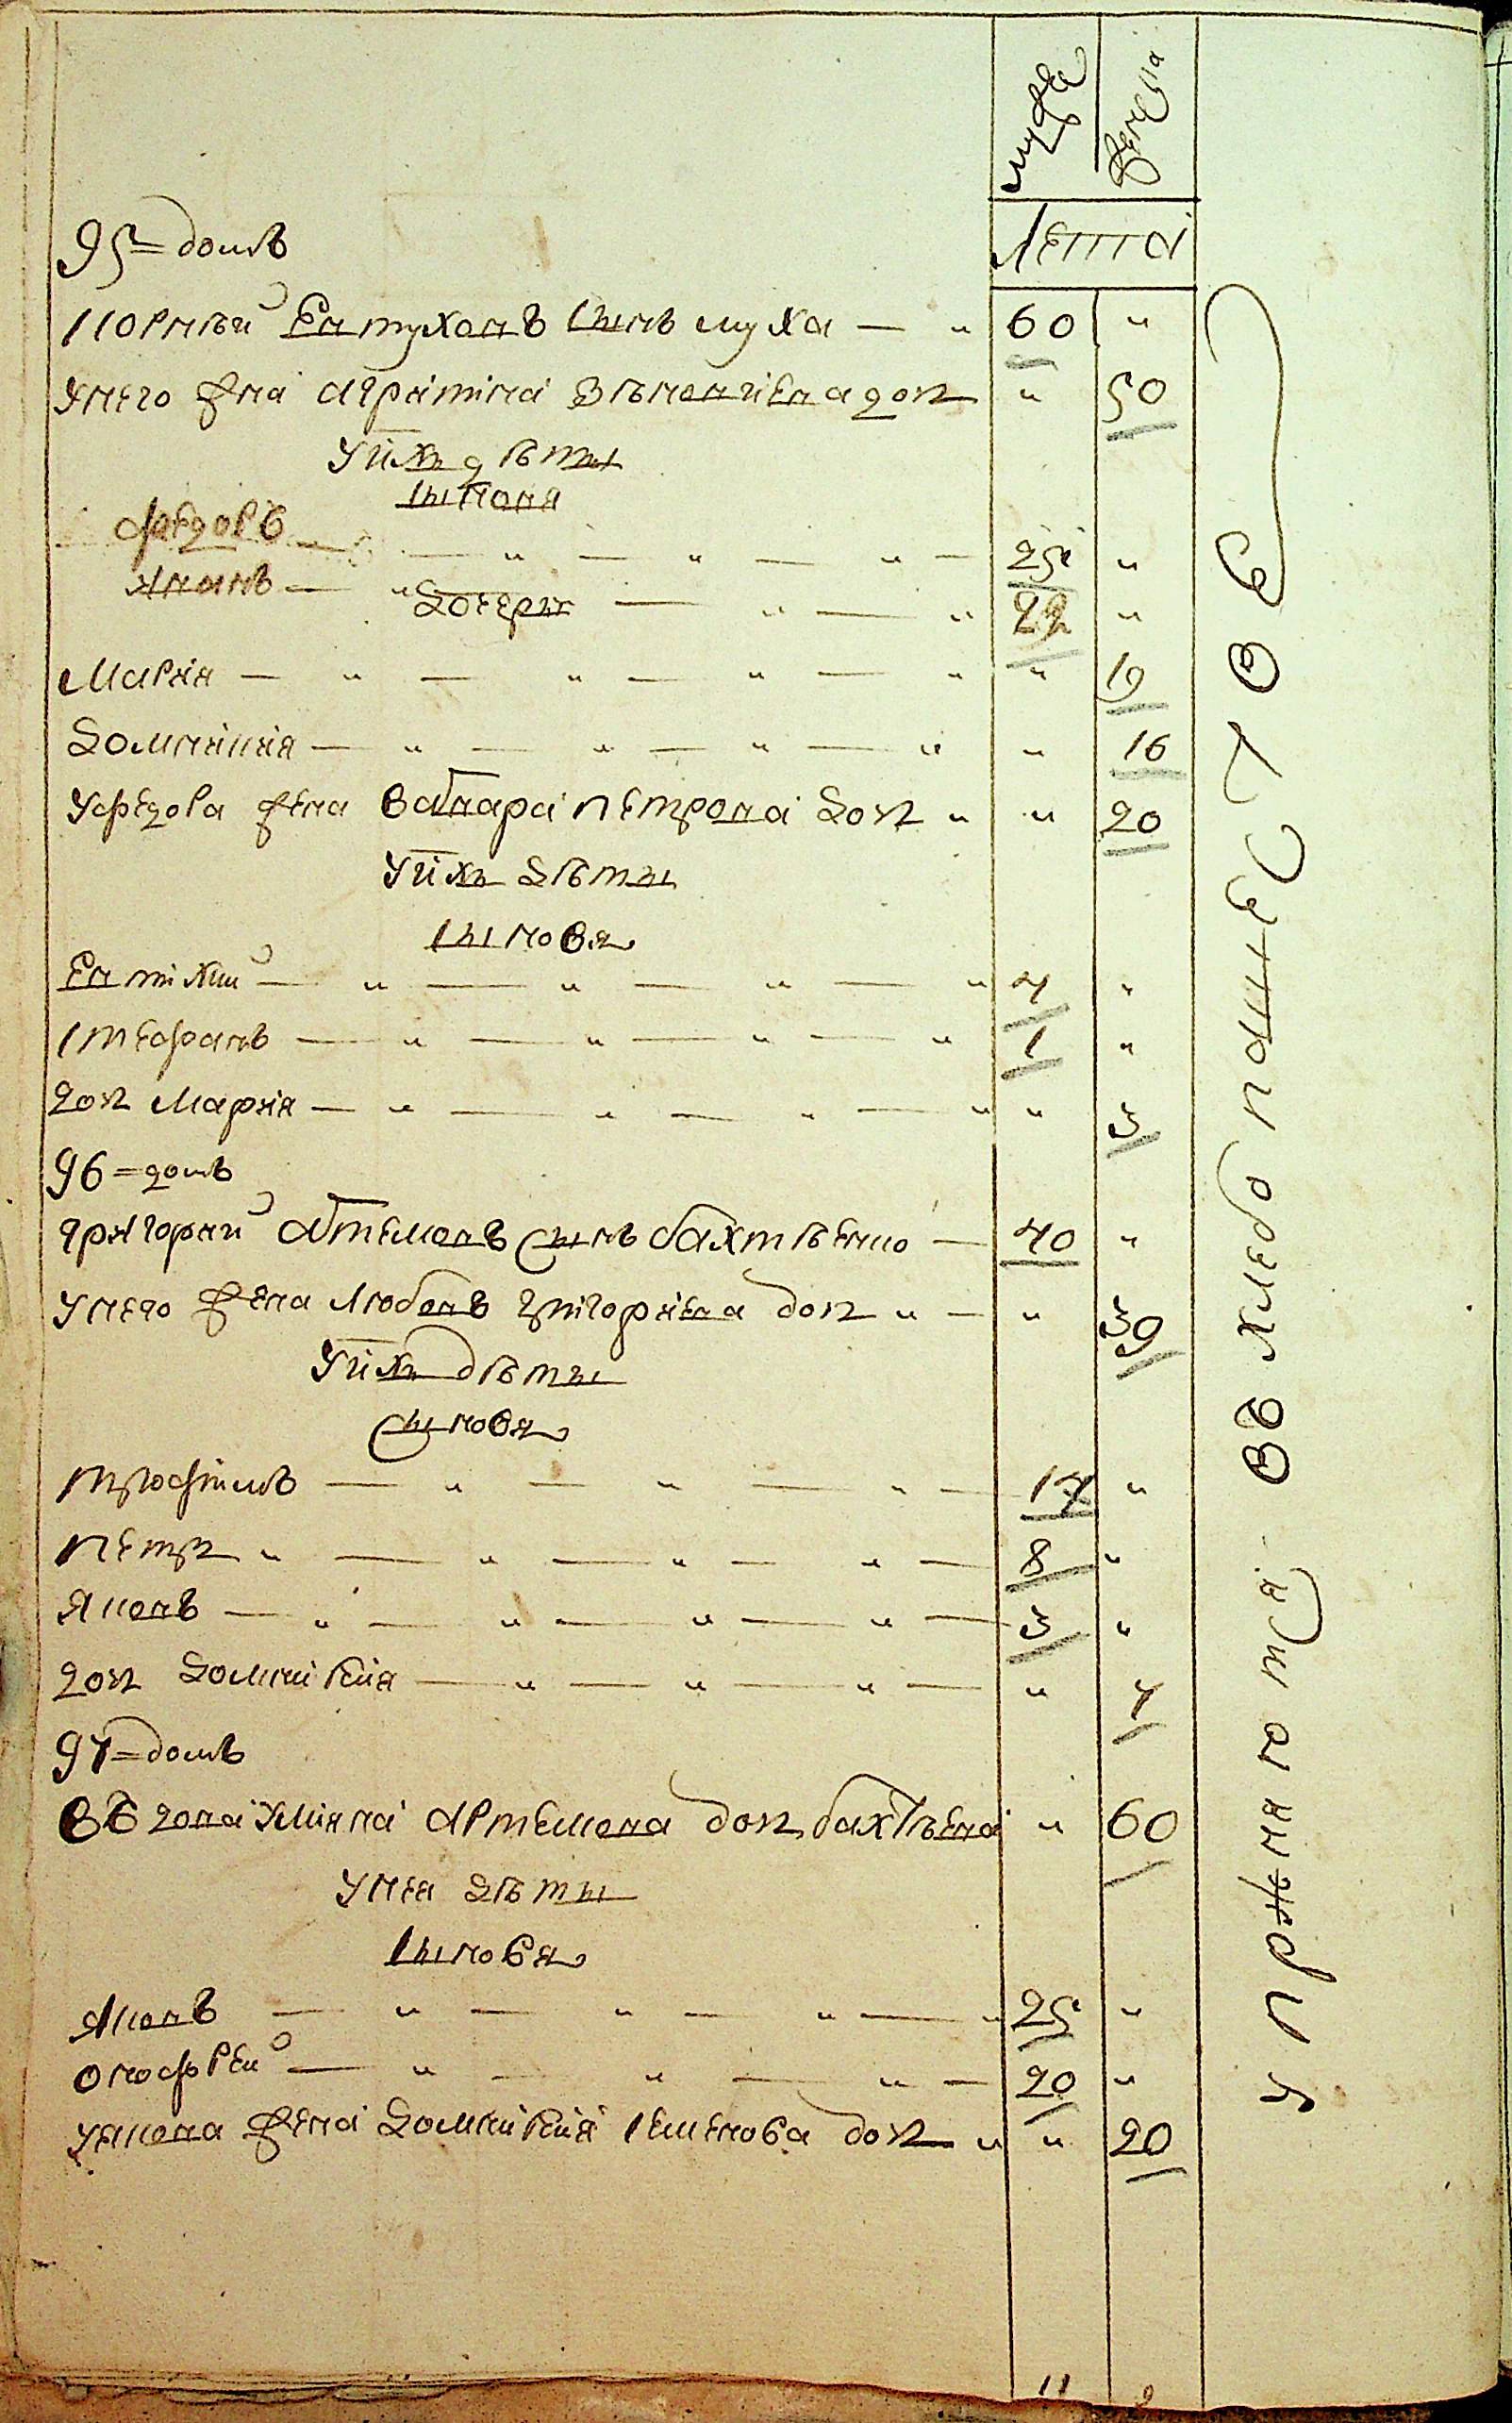 муска женска
лета
95 = домъ
Корнѣй Евтуховъ сынъ муха — " 60 "
У него жена Агрипина Зѣновиева доч " 50
У них дѣти
сыновя
Федоръ — " — " — " — 25 "
Иванъ — " — " — " 22 "
дочери
Мария — " — " — " — " " 19
Домникия — " — " — " — " " 16
У федора жена Варвара петрова доч " " 20
У них дѣти
сыновя
Евтихий — " — " — " — " 4 "
стефанъ — " — " — " — " 1 "
доч Мария — " — " — " — " " 3
96 = домъ
Григорий Артемовъ сынъ бахтѣенко — 40 "
У него жена Любовъ григориева доч " — " 39
У них дѣти
сыновя
трофимъ — " — " — " — 17 "
Петръ " — " — " — " — 8 "
Яковъ — " — " — " — " — 3 "
доч Домникия — " — " — " — " 4
97 = домъ
Вдова Улияна Артемова доч бахтѣева " 60
У нея дѣти
сыновя
Яковъ — " — " — " — " 25 "
Онофрей — " — " — " — 20 "
У якова жена Домникия семенова доч " " 20
упражняются въ хлебопашестве